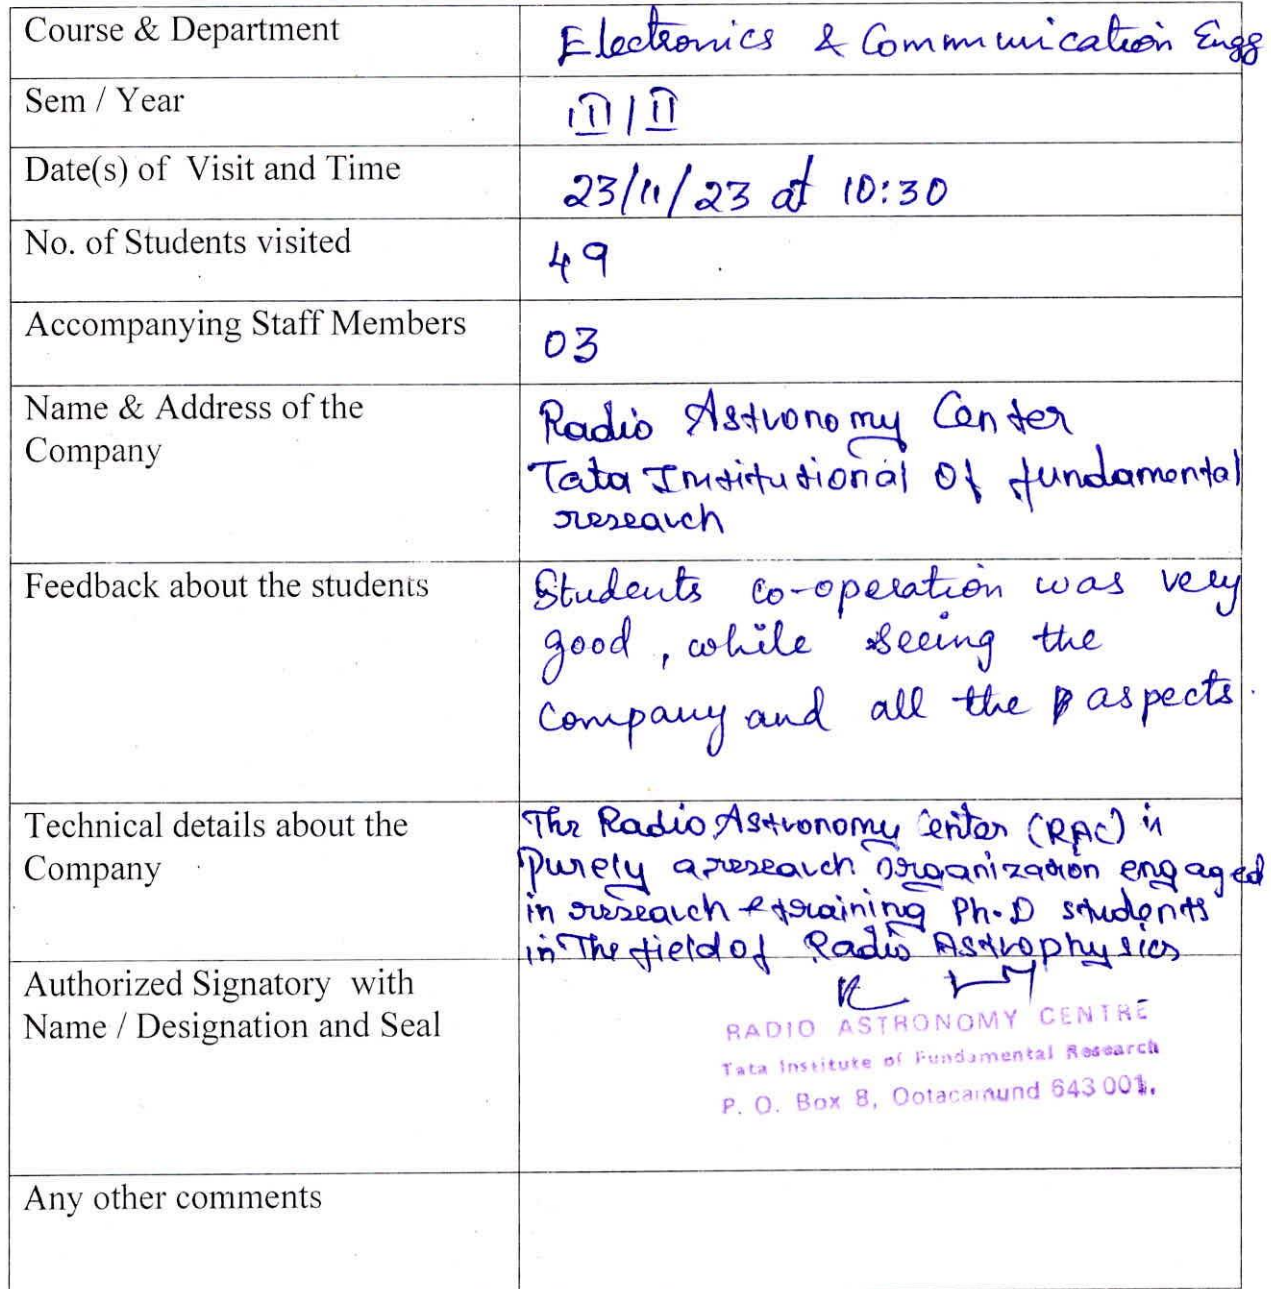 Course & Department
Electronics & Communication Engg
Sem / Year
III / II
Date(s) of Visit and Time
23/11/23 at 10:30
No. of Students visited
49
Accompanying Staff Members
03
Name & Address of the
Company
Radio Astronomy Center
Tata Institutional Of fundamental
research
Feedback about the students
Students co-operation was very
good, while seeing the
company and all the aspects.
Technical details about the
Company
The Radio Astronomy Center (RAC) is
Purely a research organization engaged
in research & training Ph.D students
in The field of Radio Astrophysics
Authorized Signatory with
Name / Designation and Seal
RADIO ASTRONOMY CENTRE
Tata Institute of Fundamental Research
P. O. Box 8, Ootacamund 643 001.
Any other comments